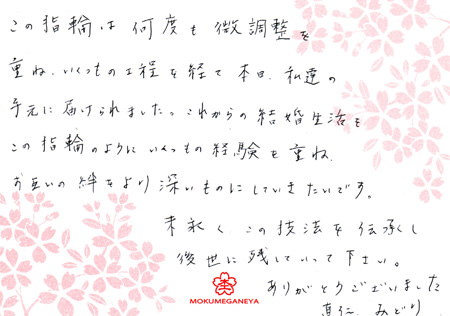 この指輪は何度も微調整を
重ね、いくつもの工程を経て本日、私達の
手元に届けられました。これからの結婚生活を
この指輪のようにいくつもの経験を重ね、
お互いの絆をより深いものにしていきたいです。
末永く、この技法を伝承し
後世に残していって下さい。
ありがとうございました
MOKUMEGANEYA
みどり